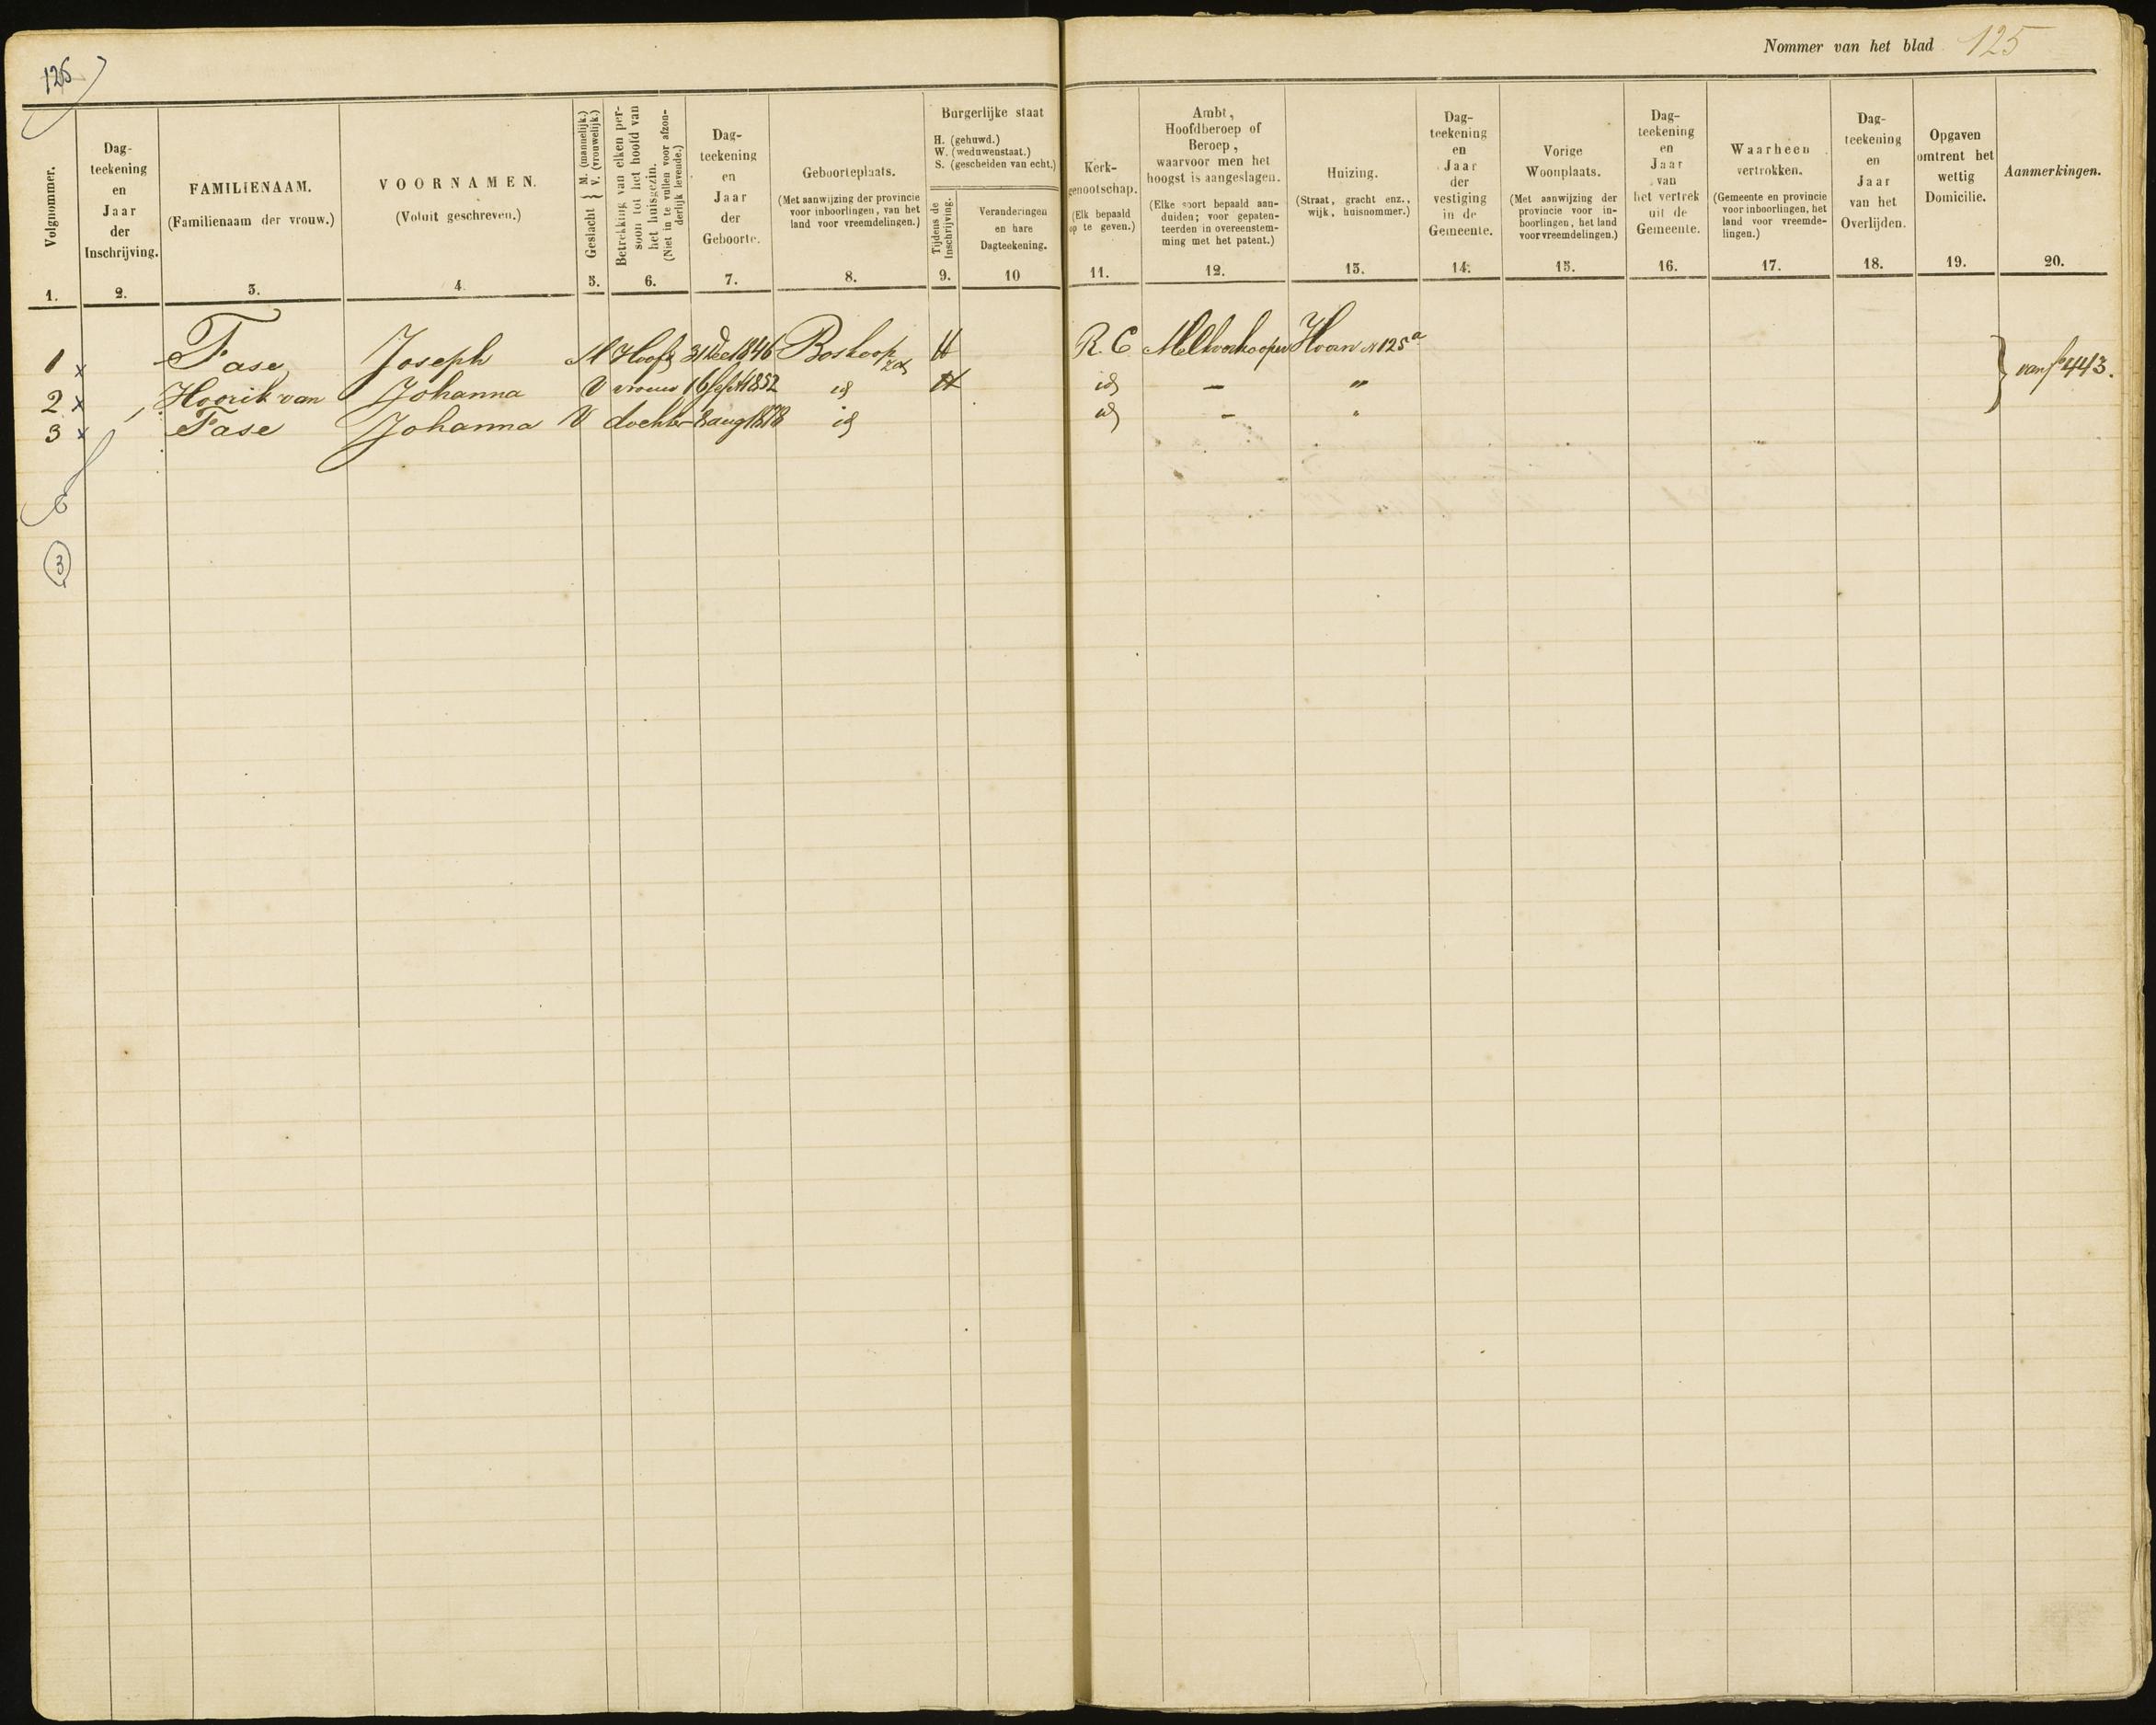 125
Nommer van het blad 125
Volgnommer.
1.
Dag-
teekening
en
Jaar
der
Inschrijving.
2.
FAMILIENAAM.
(Familienaam der vrouw.)
3.
VOORNAMEN.
(Voluit geschreven.)
4.
Geslacht { M. (mannelijk.)
V. (vrouwelijk.)
5.
Betrekking van elken per-
soon tot het hoofd van
het huisgezin.
(Niet in te vullen voor afzon-
derlijk levende.)
6.
Dag-
teekening
en
Jaar
der
Geboorte.
7.
Geboorteplaats.
(Met aanwijzing der provincie
voor inboorlingen, van het
land voor vreemdelingen.)
8.
Burgerlijke staat
H. (gehuwd.)
W. (weduwenstaat.)
S. (gescheiden van echt.)
Tijdens de
inschrijving.
9.
Veranderingen
en hare
Dagteekening.
10
Kerk-
genootschap.
(Elk bepaald
op te geven.)
11.
Ambt,
Hoofdberoep of
Beroep,
waarvoor men het
hoogst is aangeslagen.
(Elke soort bepaald aan-
duiden; voor gepaten-
teerden in overeenstem-
ming met het patent.)
12.
Huizing.
(Straat, gracht enz.,
wijk, huisnommer.)
13.
Dag-
teekening
en
Jaar
der
vestiging
in de
Gemeente.
14.
Vorige
Woonplaats.
(Met aanwijzing der
provincie voor in-
boorlingen, het land
voor vreemdelingen.)
15.
Dag-
teekening
en
Jaar
van
het vertrek
uit de
Gemeente.
16.
Waarheen
vertrokken.
(Gemeente en provincie
voor inboorlingen, het
land voor vreemde-
lingen.)
17.
Dag-
teekening
en
Jaar
van het
Overlijden.
18.
Opgaven
omtrent het
wettig
Domicilie.
19.
Aanmerkingen.
20.
1 x Fase Joseph M Hoofd 31 Dec 1846 Boskoop ZH H R.C Melkverkooper Hoorn N 125a } van fo 443.
2 x Hoorik van Johanna V vrouw 16 Sept 1852 id H id – "
3 x Fase Johanna V dochter 8 aug 1878 id id – "
3